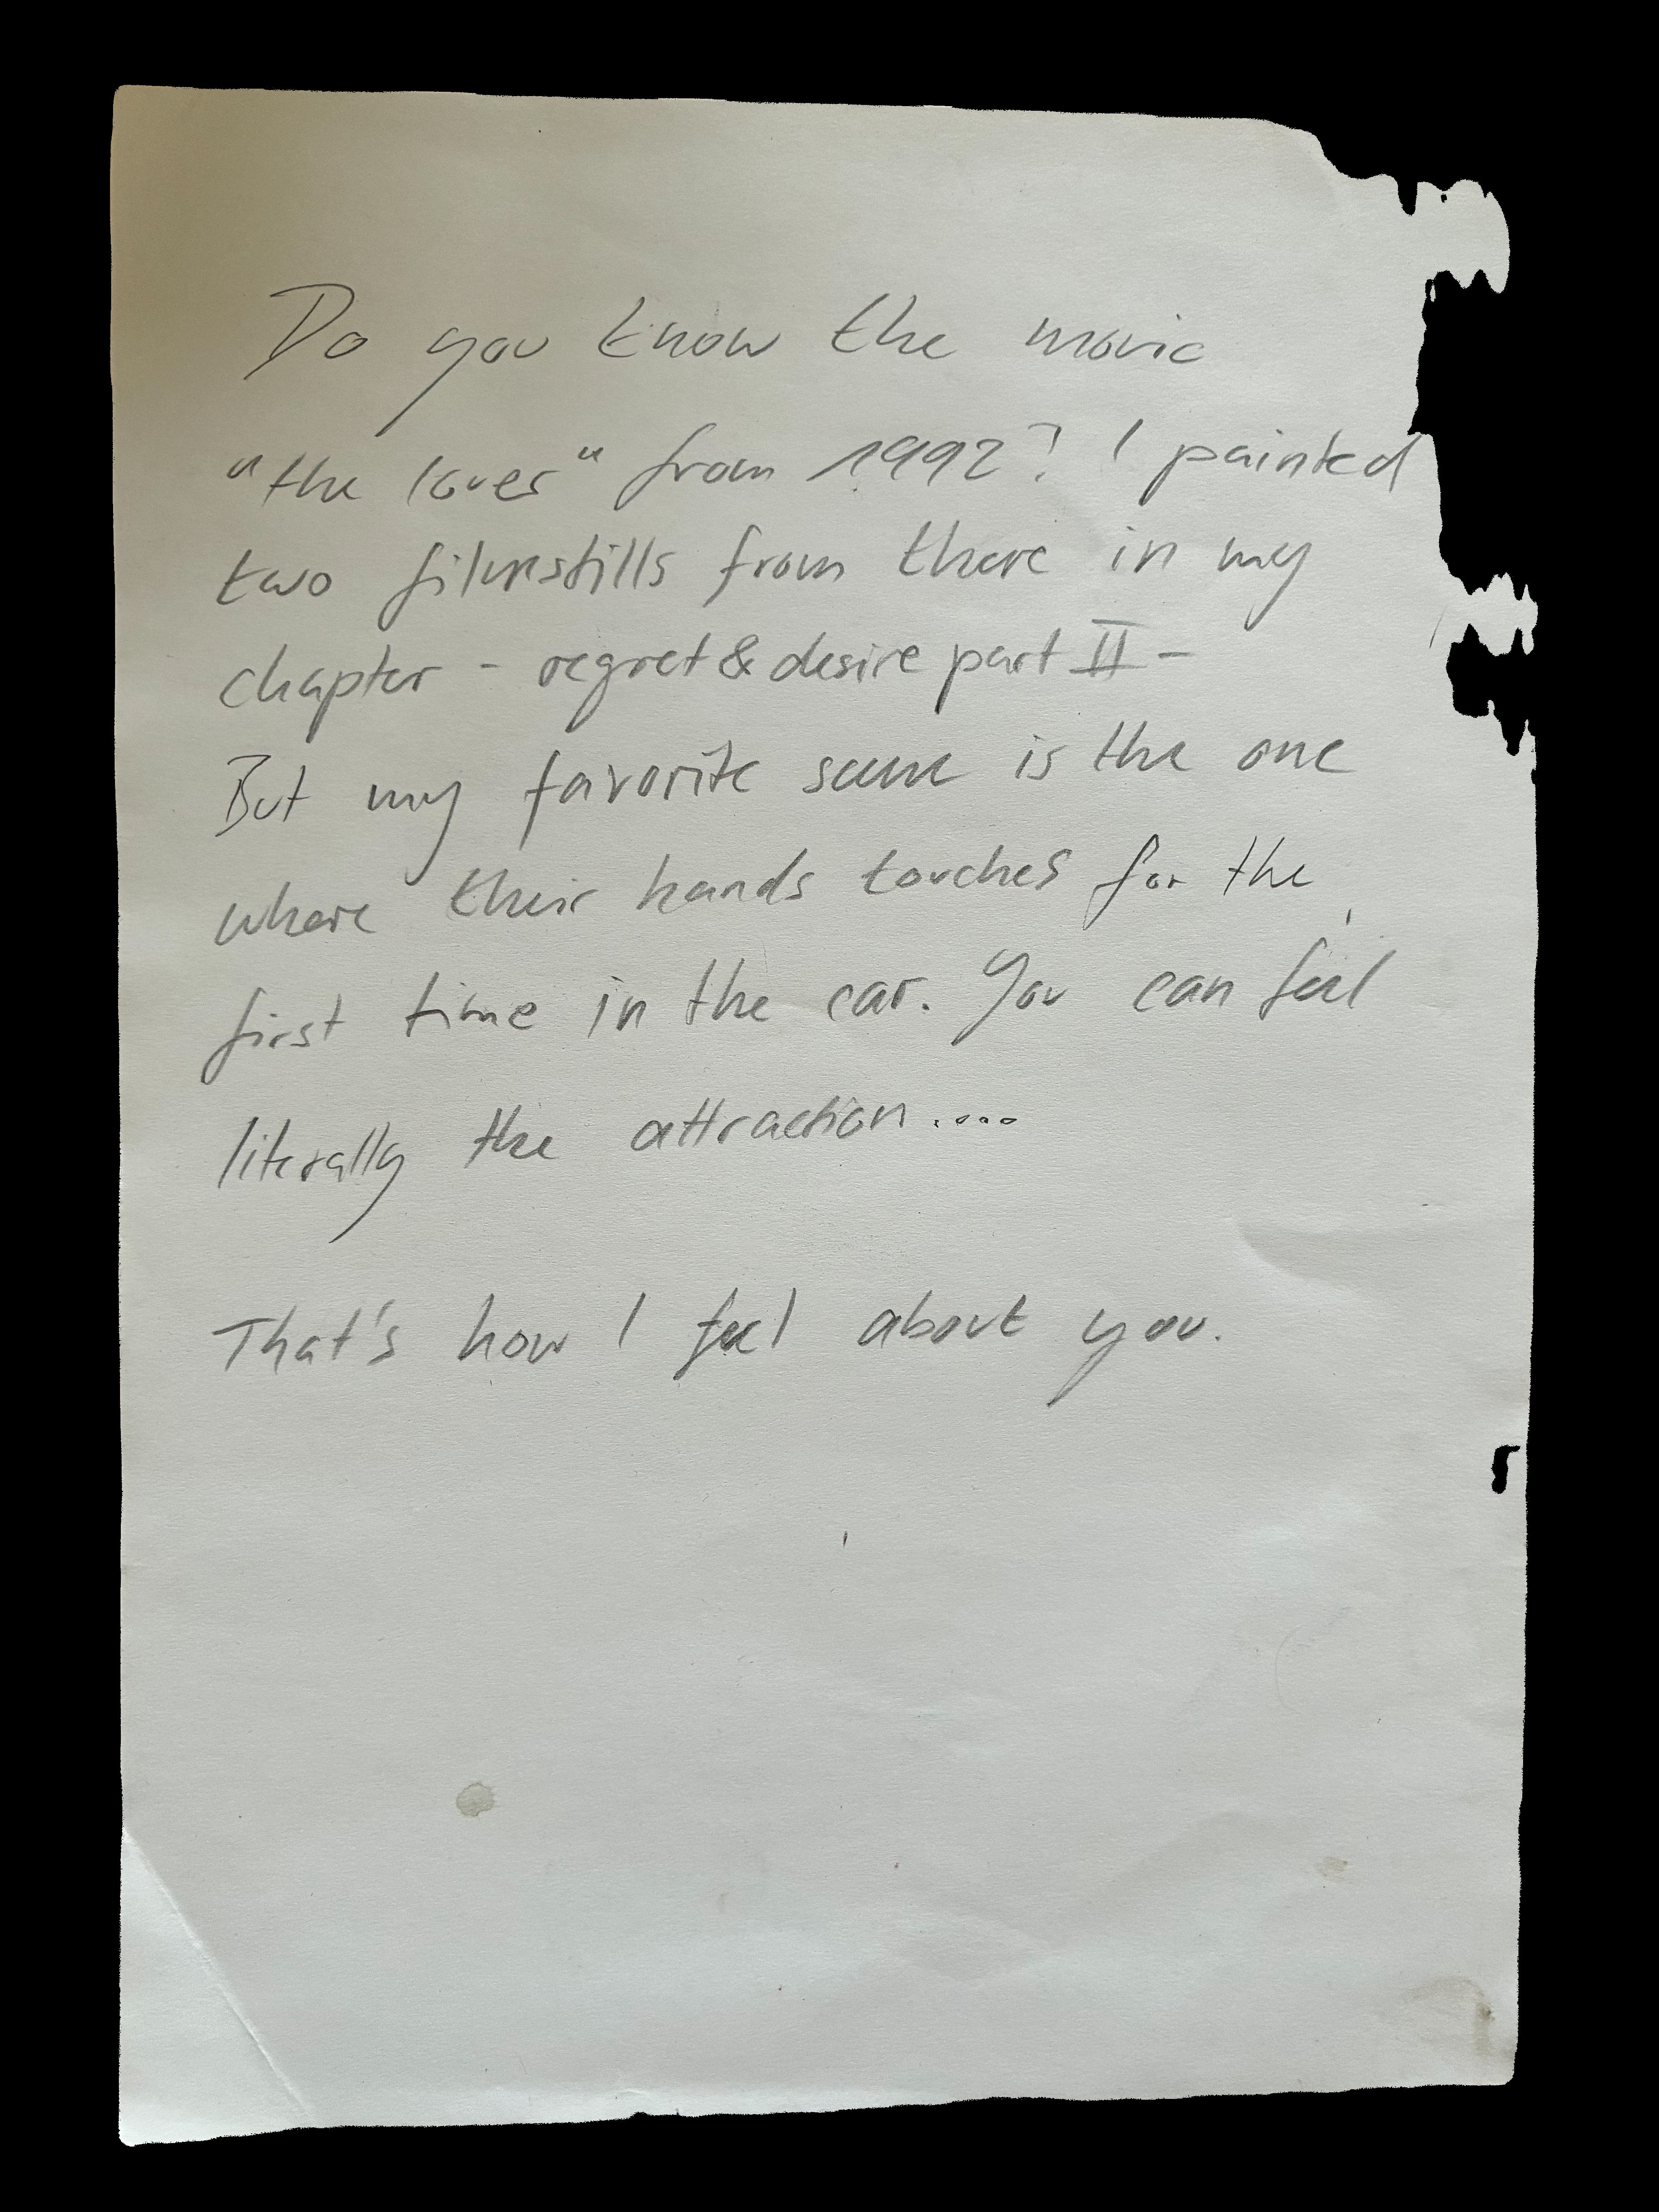 Do you know the movie
"the lover" from 1992? I painted
two filmstills from there in my
chapter - regret & desire part II -
But my favorite scene is the one
where their hands touches for the
first time in the car. You can feel
literally the attraction....
That's how I feel about you.